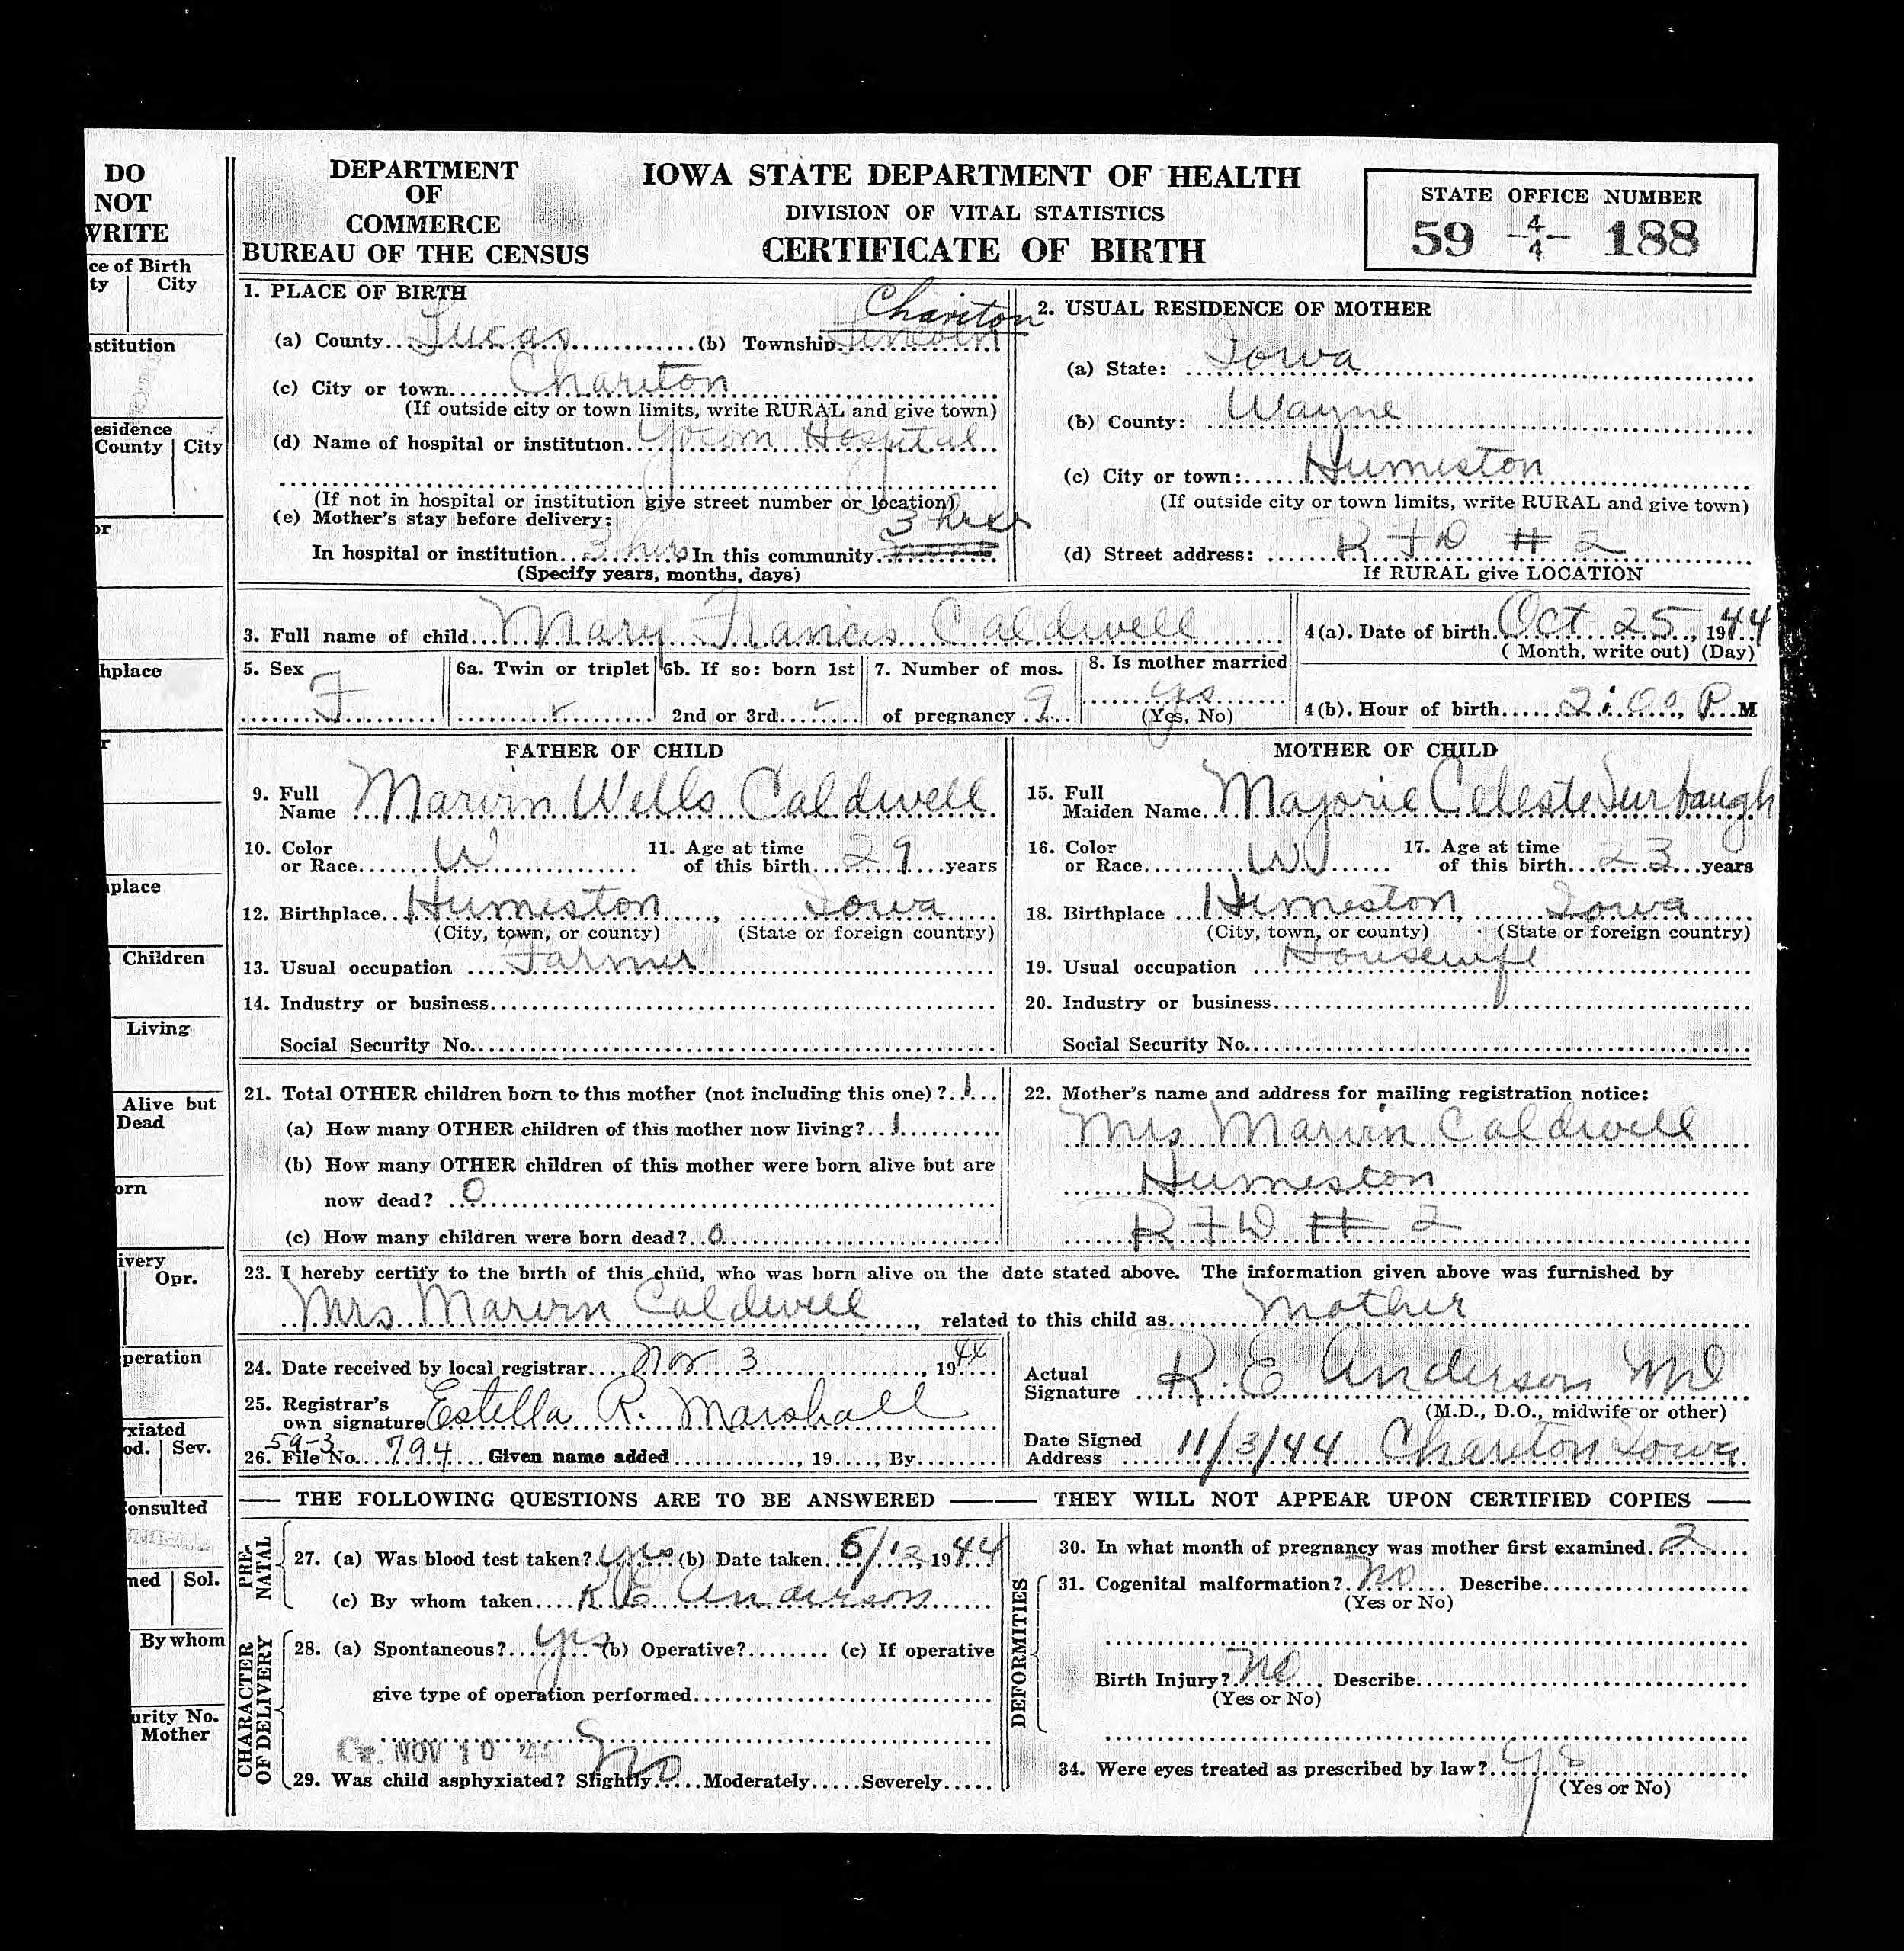 DO
NOT
WRITE
DEPARTMENT
OF
COMMERCE
BUREAU OF THE CENSUS
IOWA STATE DEPARTMENT OF HEALTH
DIVISION OF VITAL STATISTICS
CERTIFICATE OF BIRTH
STATE OFFICE NUMBER
59 4/4 188
1. PLACE OF BIRTH
(a) County Lucas (b) Township Lincoln Chariton
(c) City or town Chariton
(If outside city or town limits, write RURAL and give town)
(d) Name of hospital or institution Yocom Hospital
(If not in hospital or institution give street number or location)
(e) Mother's stay before delivery:
In hospital or institution 3 hrs In this community 3 hrs
(Specify years, months, days)
2. USUAL RESIDENCE OF MOTHER
(a) State: Iowa
(b) County: Wayne
(c) City or town: Humeston
(If outside city or town limits, write RURAL and give town)
(d) Street address: R F D # 2
If RURAL give LOCATION
3. Full name of child Mary Francis Caldwell
4(a). Date of birth Oct 25, 1944
(Month, write out) (Day)
5. Sex F
6a. Twin or triplet
6b. If so: born 1st
2nd or 3rd
7. Number of mos.
of pregnancy 9
8. Is mother married
yes
(Yes, No)
4(b). Hour of birth 2:00 P M
FATHER OF CHILD
9. Full
Name Marvin Wells Caldwell
10. Color
or Race W
11. Age at time
of this birth 29 years
12. Birthplace Humeston, Iowa
(City, town, or county) (State or foreign country)
13. Usual occupation Farmer
14. Industry or business
Social Security No.
MOTHER OF CHILD
15. Full
Maiden Name Majorie Celeste Surbaugh
16. Color
or Race W
17. Age at time
of this birth 23 years
18. Birthplace Humeston, Iowa
(City, town, or county) (State or foreign country)
19. Usual occupation Housewife
20. Industry or business
Social Security No.
21. Total OTHER children born to this mother (not including this one)? 1
(a) How many OTHER children of this mother now living? 1
(b) How many OTHER children of this mother were born alive but are
now dead? 0
(c) How many children were born dead? 0
22. Mother's name and address for mailing registration notice:
Mrs Marvin Caldwell
Humeston
R F D # 2
23. I hereby certify to the birth of this child, who was born alive on the date stated above. The information given above was furnished by
Mrs Marvin Caldwell, related to this child as Mother
24. Date received by local registrar Nov 3, 1944
25. Registrar's
own signature Estella R. Marshall
59-3
26. File No. 794 Given name added , 19 , By
Actual
Signature R. E Anderson MD
(M.D., D.O., midwife or other)
Date Signed
Address 11/3/44 Chariton Iowa
THE FOLLOWING QUESTIONS ARE TO BE ANSWERED
THEY WILL NOT APPEAR UPON CERTIFIED COPIES
PRE-
NATAL
27. (a) Was blood test taken? yes (b) Date taken 5/12, 1944
(c) By whom taken R E Anderson
CHARACTER
OF DELIVERY
28. (a) Spontaneous? yes (b) Operative? (c) If operative
give type of operation performed
NOV 10 '44
29. Was child asphyxiated? Slightly No Moderately Severely
30. In what month of pregnancy was mother first examined 2
DEFORMITIES
31. Cogenital malformation? No Describe
(Yes or No)
Birth Injury? No Describe
(Yes or No)
34. Were eyes treated as prescribed by law? yes
(Yes or No)
ce of Birth
ty City
stitution
esidence
County City
or
hplace
r
place
Children
Living
Alive but
Dead
orn
ivery
Opr.
peration
xiated
od. Sev.
onsulted
ned Sol.
By whom
urity No.
Mother